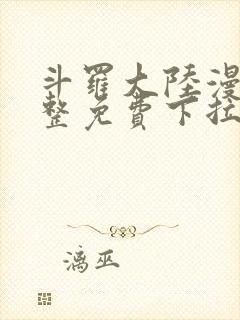 斗羅大陸漫
整免費下拉
漓巫